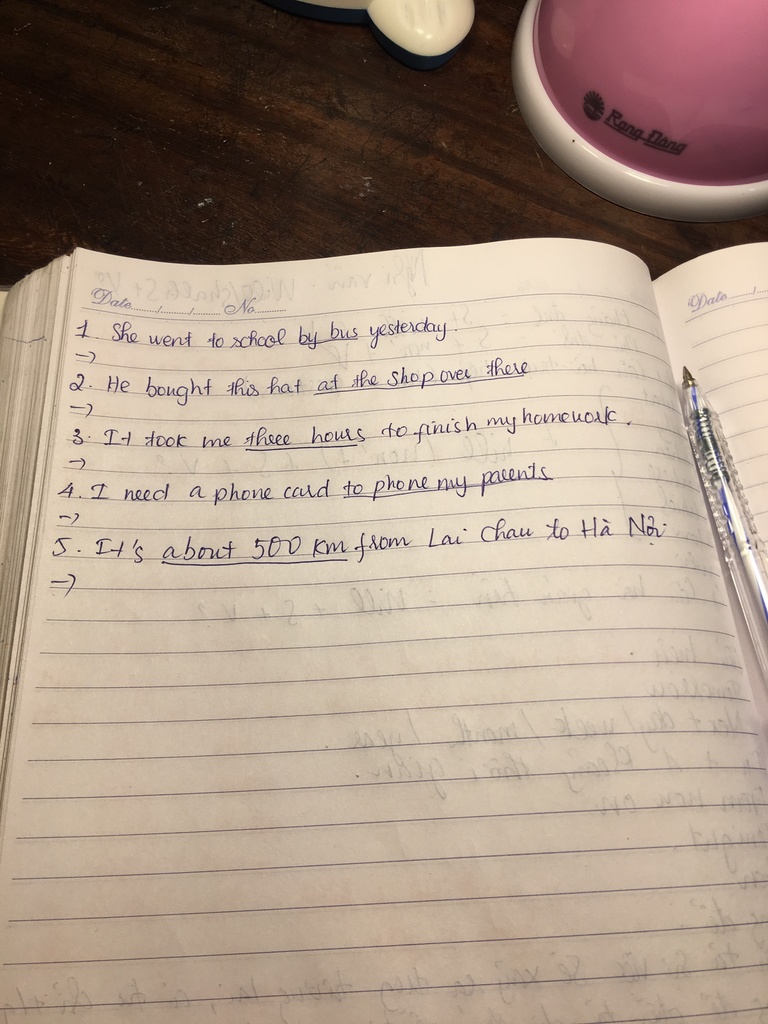 Rang Dong
Date...../...../..... No..........
Date...../.....
1. She went to school by bus yesterday.
->
2. He bought this hat at the shop over there
->
3. It took me three hours to finish my homework.
->
4. I need a phone card to phone my parents
->
5. It's about 500 km from Lai Chau to Hà Nội
=>